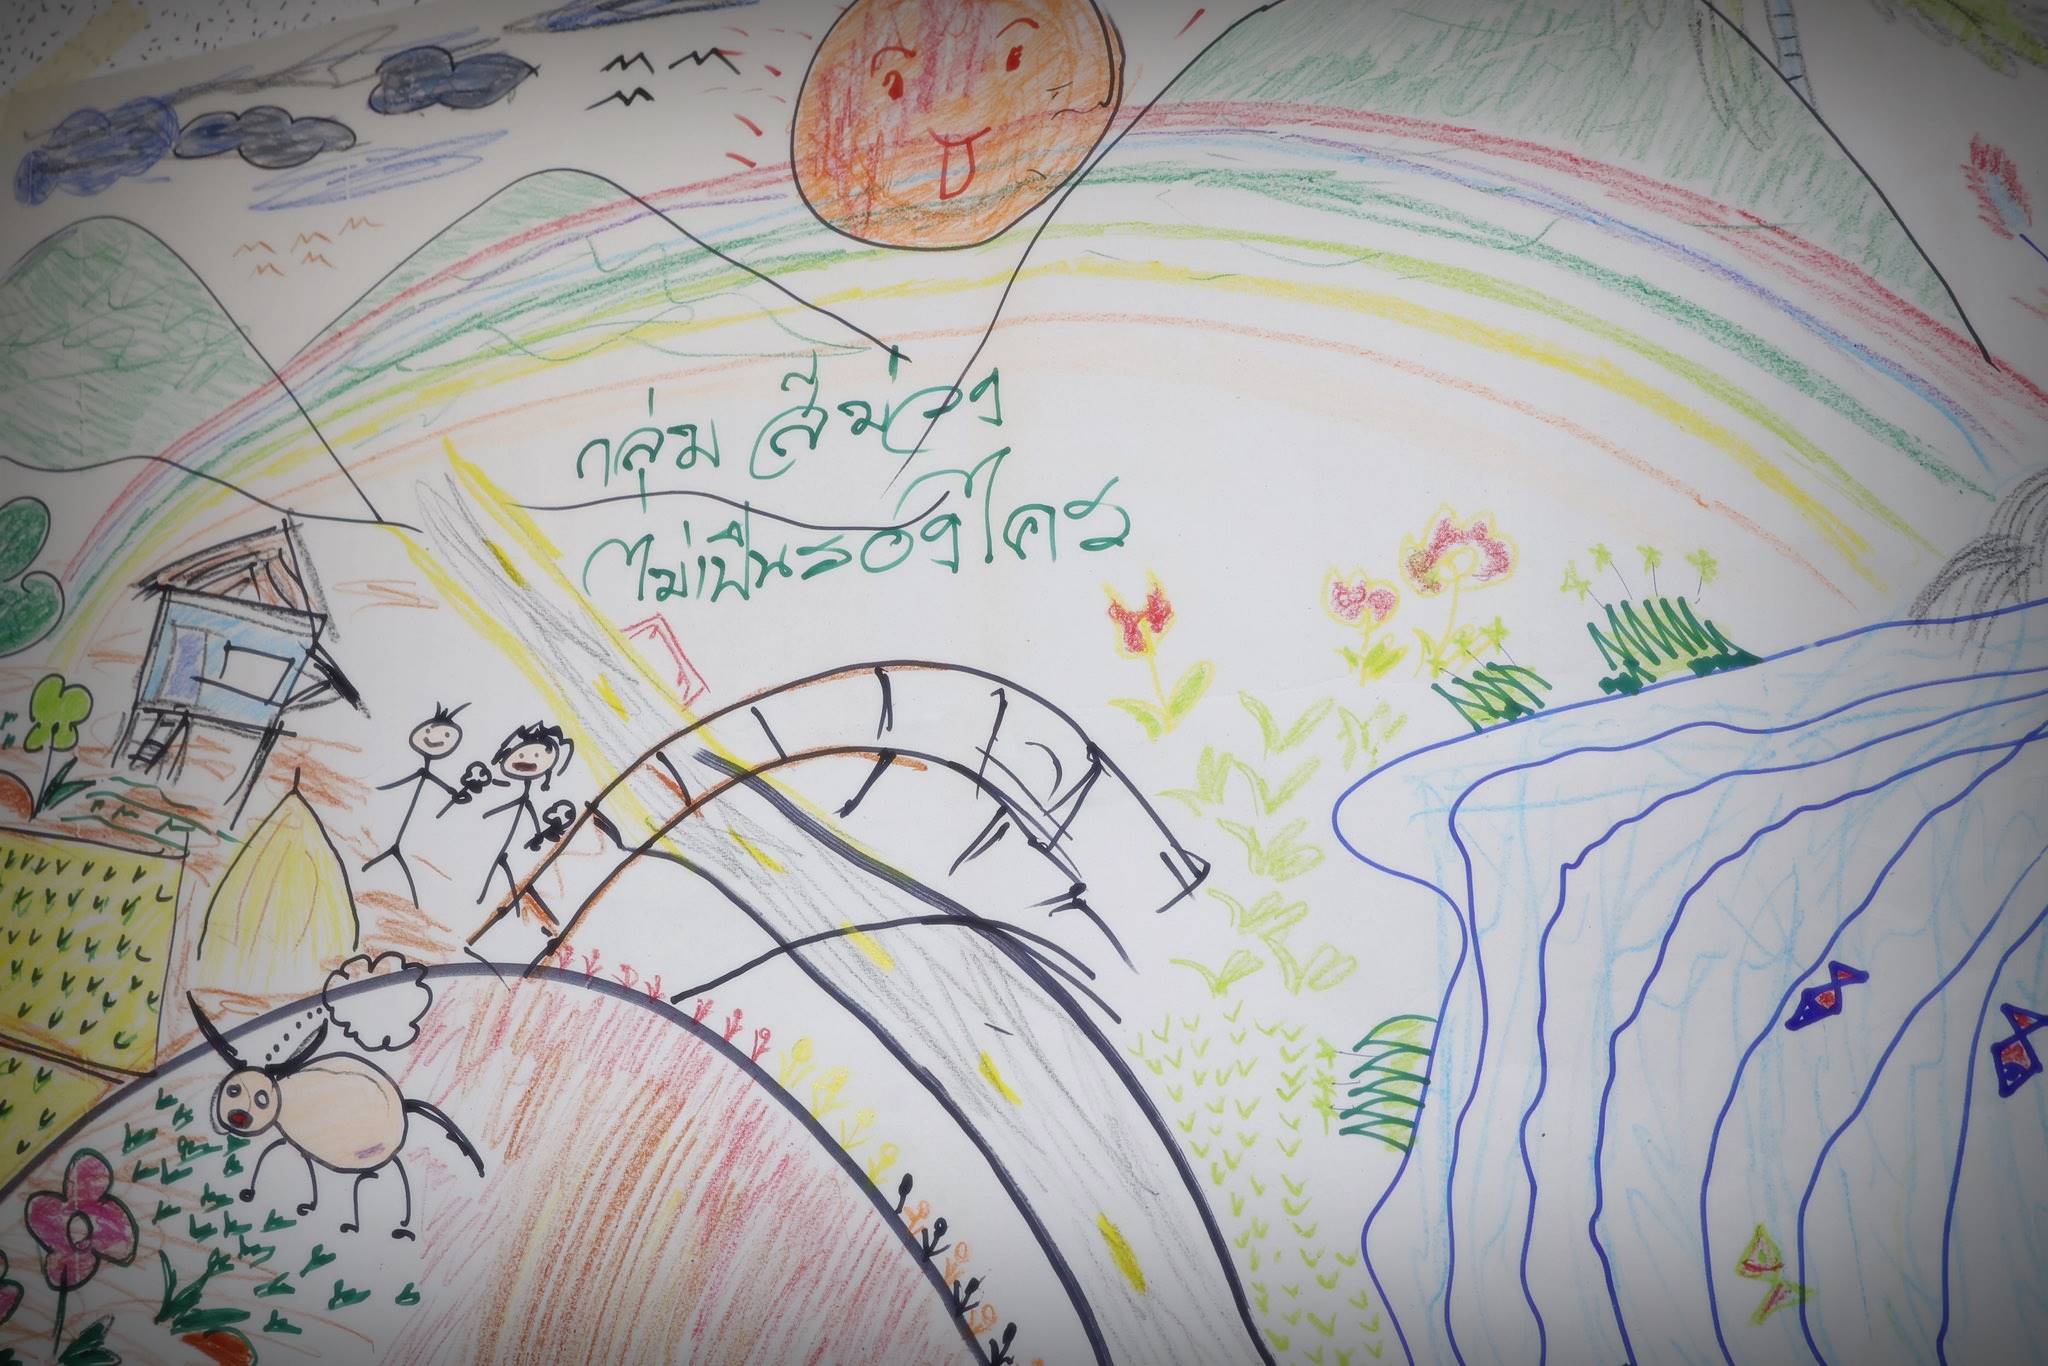 กลุ่ม สีม่วง
ไม่เป็นรองใคร